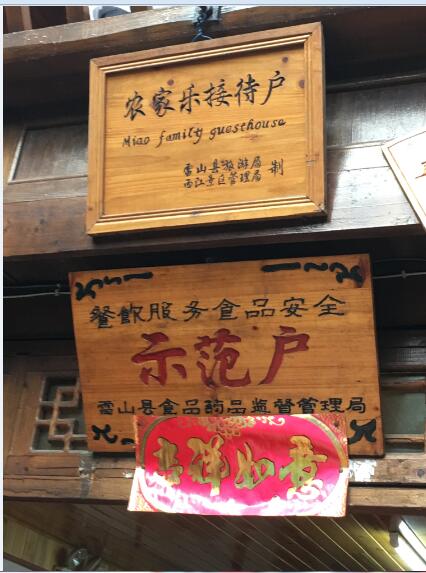 农家乐接待户
Miao family guesthouse
雷山县旅游局
西江景区管理局 制
餐飲服务食品安全
示范户
雷山县食品药品监督管理局
吉祥如意